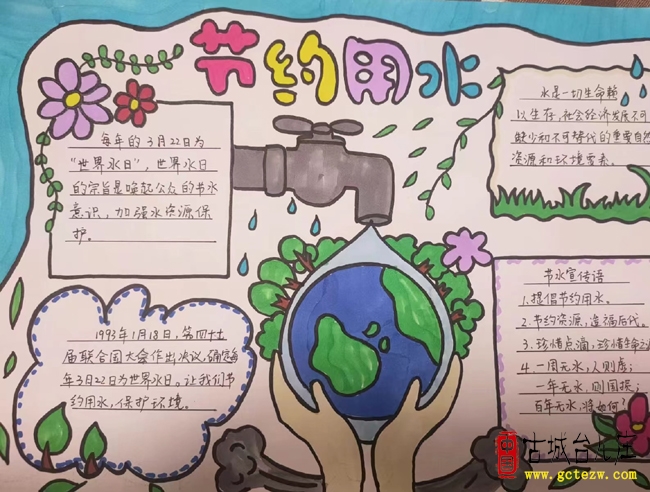 节约用水
每年的3月22日为
"世界水日"，世界水日
的宗旨是唤起公众的节水
意识，加强水资源保
护。
水是一切生命赖
以生存，社会经济发展不可
缺少和不可替代的重要自然
资源和环境要素。
1993年1月18日，第四十七
届联合国大会作出决议，确定每
年3月22日为世界水日。让我们节
约用水，保护环境。
节水宣传语
1.提倡节约用水。
2.节约资源，造福后代。
3.珍惜点滴，珍惜生命之
4.一周无水，人则虚；
一年无水，则国损；
百年无水，将如何？
中国
古城台儿庄
www.gctezw.com